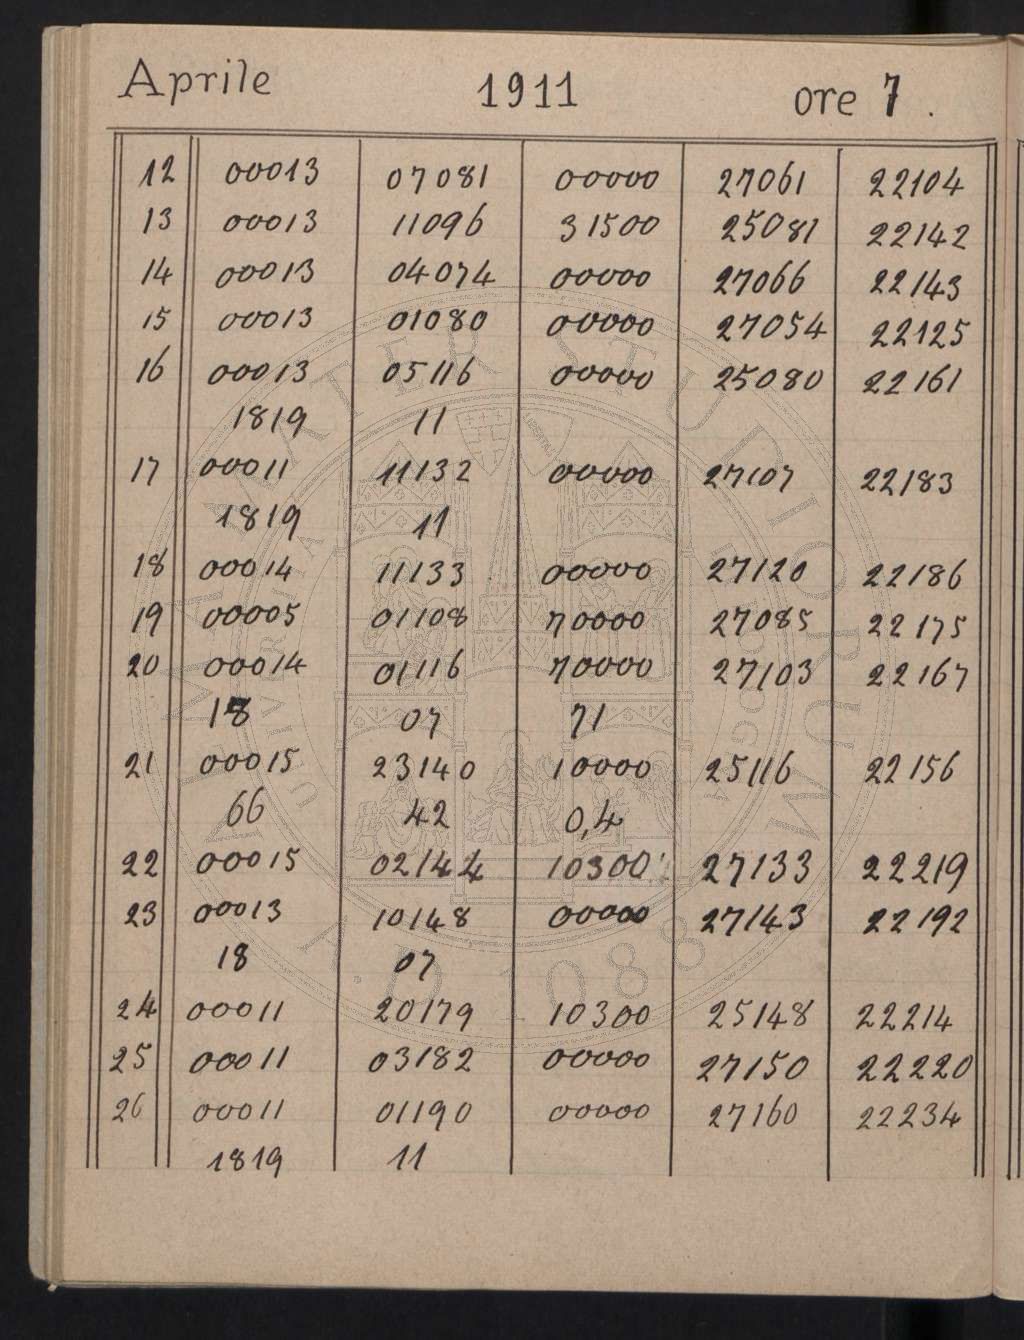 Aprile 1911 ore 7.
12 00013 07081 00000 27061 22104
13 00013 11096 31500 25081 22142
14 00013 04074 00000 27066 22143
15 00013 01080 00000 27054 22125
16 00013 05116 00000 25080 22161
1819 11
17 00011 11132 00000 27107 22183
1819 11
18 00014 11133 00000 27120 22186
19 00005 01108 70000 27085 22175
20 00014 01116 70000 27103 22167
18 07 71
21 00015 23140 10000 25116 22156
66 42 0,4
22 00015 02144 10300 27133 22219
23 00013 10148 00000 27143 22192
18 07
24 00011 20179 10300 25148 22214
25 00011 03182 00000 27150 22220
26 00011 01190 00000 27160 22234
1819 11
ALMA MATER STUDIORUM
A.D. 1088